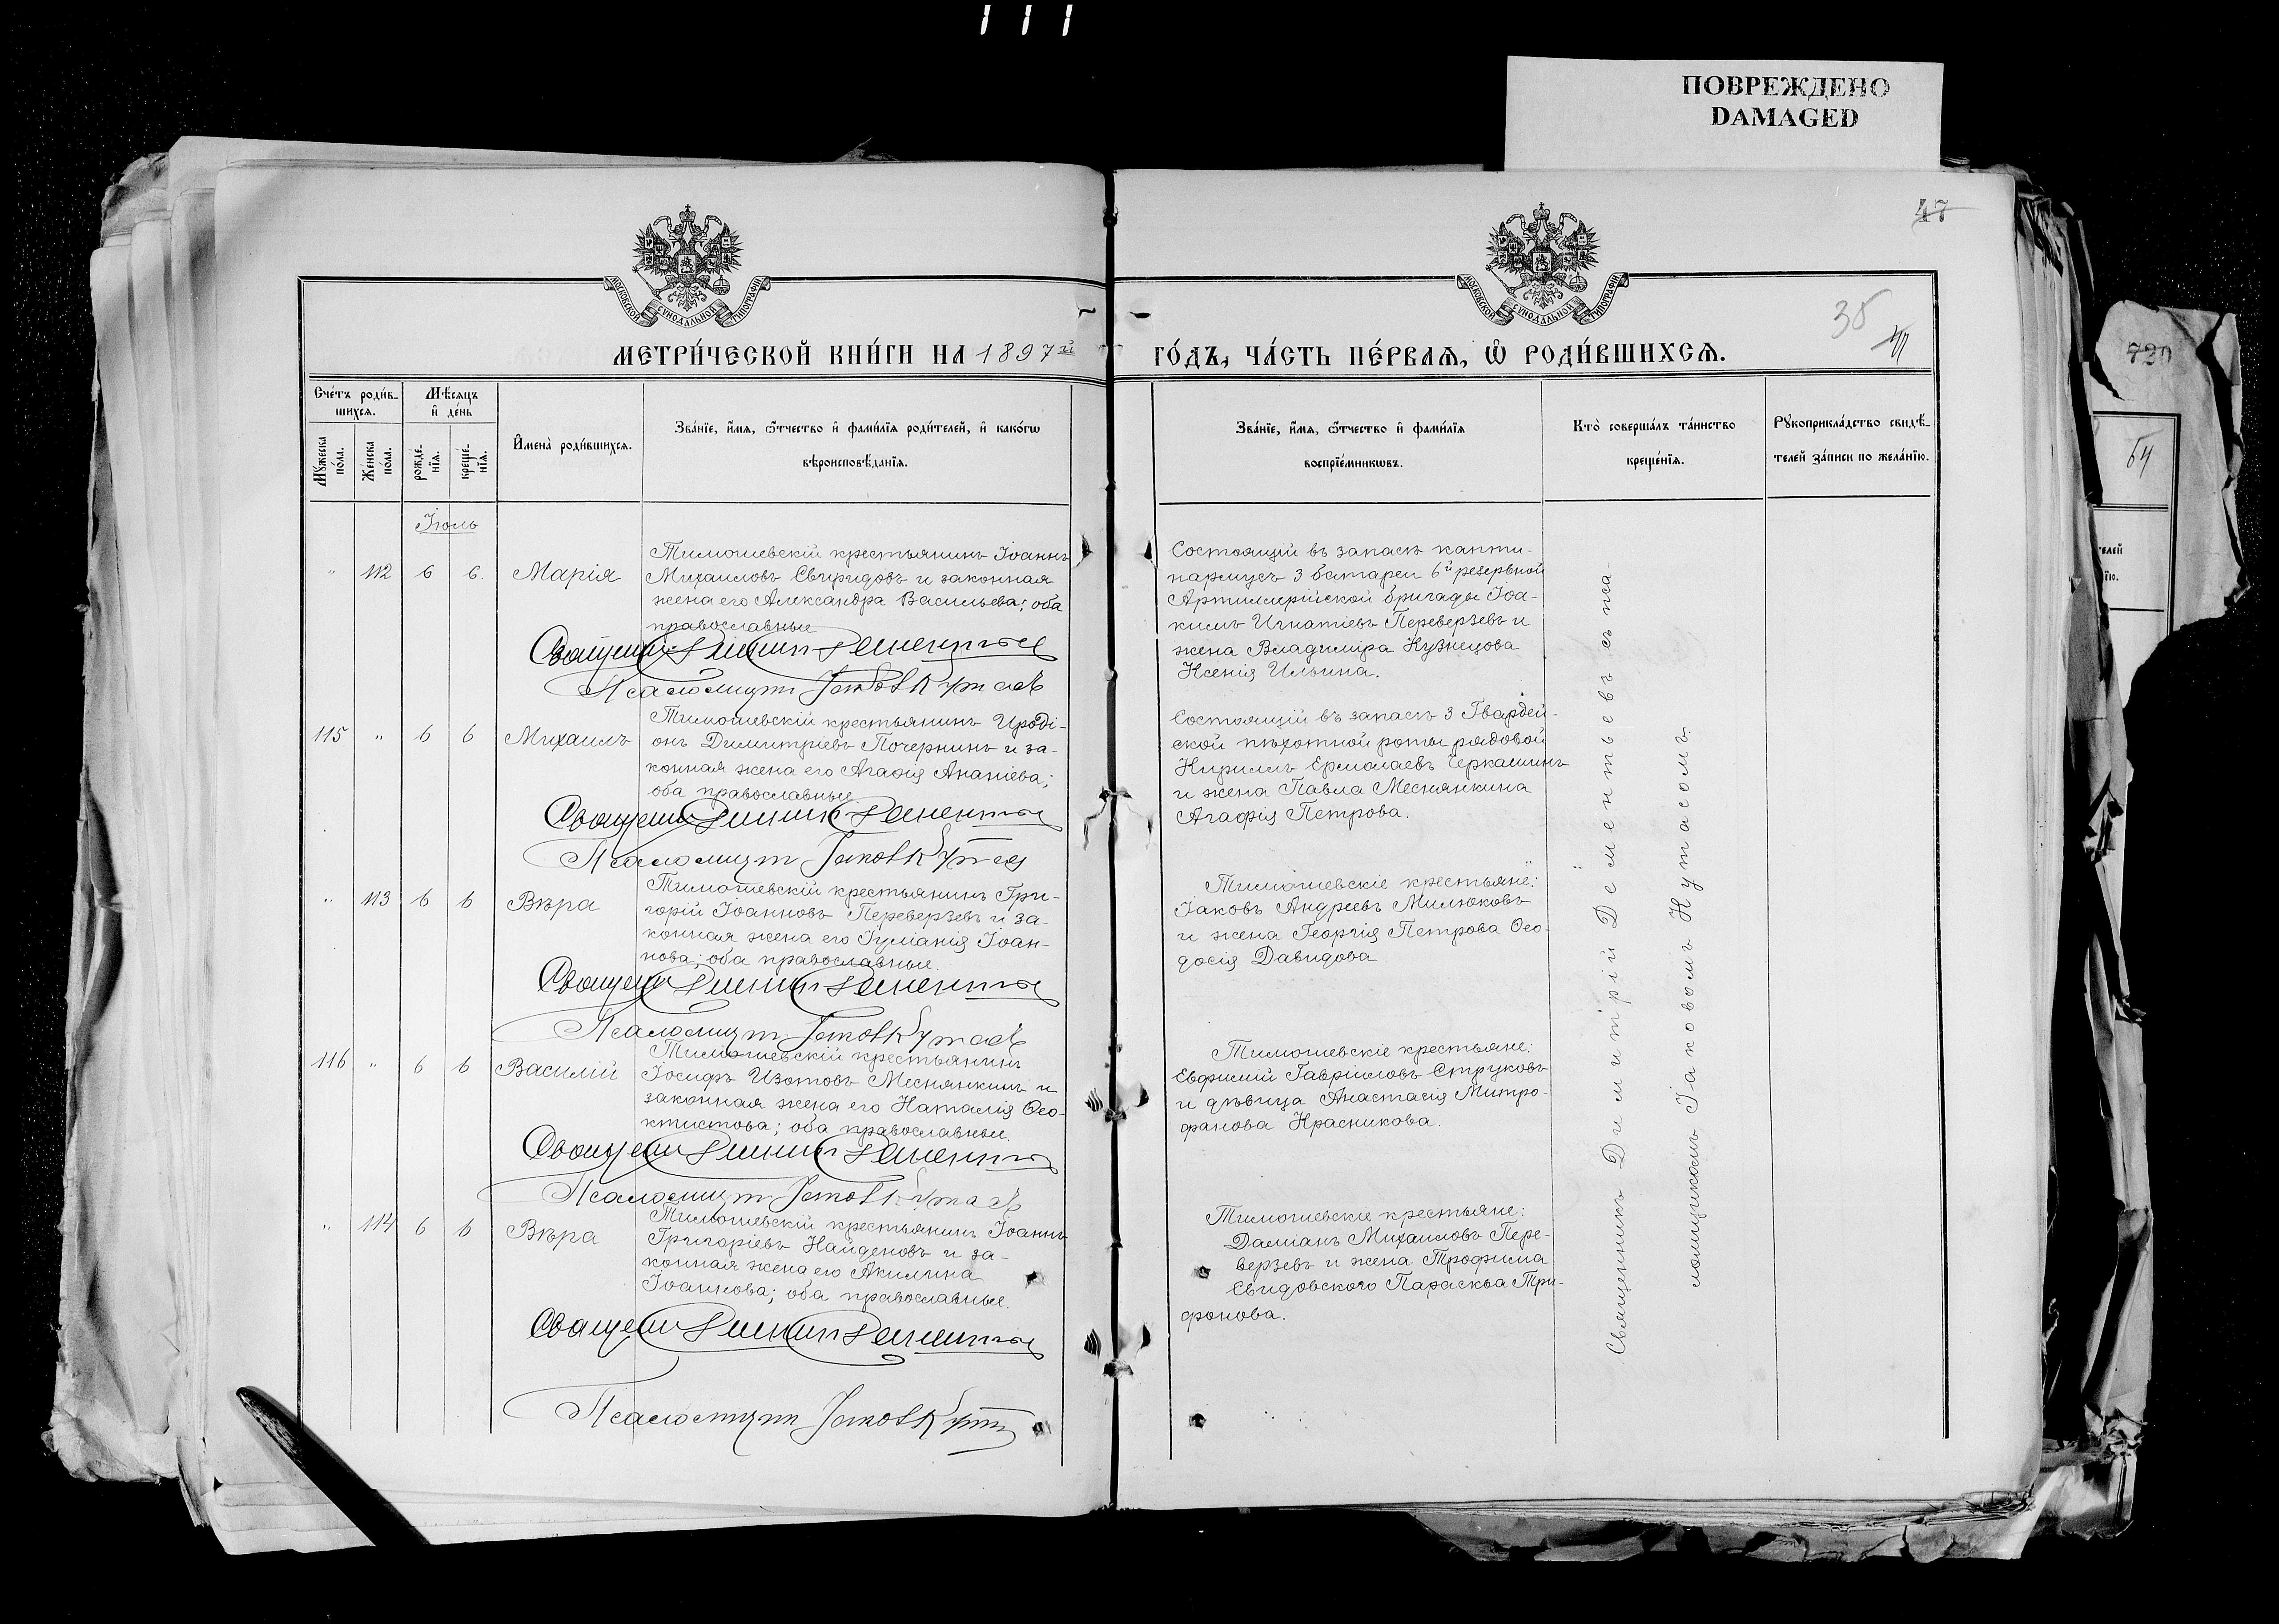 ПОВРЕЖДЕНО
DAMAGED
47
35
720
МОСКОВСКОЙ СѴНОДАЛЬНОЙ ТИПОГРАФІИ
МОСКОВСКОЙ СѴНОДАЛЬНОЙ ТИПОГРАФІИ
МЕТРИ́ЧЕСКОЙ КНИ́ГИ НА 1897й
ГО́ДЪ, ЧА́СТЬ ПЕ́РВАЯ, Ѡ РОДИ́ВШИХСЯ.
Сче́тъ роди́в-
шихся.
Мѣ́сяцъ
и҆ де́нь
Мꙋ́жеска
по́ла.
Же́нска
по́ла.
рожде́-
нїя.
креще́-
нїя.
И҆мена̀ роди́вшихся.
Зва́нїе, и҆́мя, ѻ҆́тчество и҆ фами́лїя роди́телей, и҆ како́гѡ
вѣроисповѣ́данїя.
Зва́нїе, и҆́мя, ѻ҆́тчество и҆ фами́лїя
воспрїе́мникѡвъ.
Кто̀ соверша́лъ та́инство
креще́нїя.
Рꙋкоприкла́дство свидѣ́-
телей за́писи по жела́нїю.
Іюль
" 112 6 6. Марія
Тимошевскій крестьянинъ Іоаннъ
Михаиловъ Свиридовъ и законная
жена его Александра Васильева; оба
православные
Священникъ Димитрій Дементьевъ
Псаломщикъ Іаковъ Кутасовъ
Состоящій въ запасѣ капти-
нармусъ 3 батареи 6й резервной
Артиллерійской бригады Іоа-
кимъ Игнатіевъ Переверзевъ и
жена Владиміра Кузнецова
Ксенія Ильина.
115 " 6 6 Михаилъ
Тимошевскій крестьянинъ Ироді-
онъ Димитріевъ Почернинъ и за-
конная жена его Агафія Ананіева;
оба православные
Священникъ Димитрій Дементьевъ
Псаломщикъ Іаковъ Кутасовъ
Состоящій въ запасѣ 3 Гвардей-
ской пѣхотной роты рядовой
Кириллъ Ермолаевъ Черкашинъ
и жена Павла Меснянкина
Агафія Петрова.
" 113 6 6 Вѣра
Тимошевскій крестьянинъ Гри-
горій Іоанновъ Переверзевъ и за-
конная жена его Іуліанія Іоан-
нова; оба православные.
Священникъ Димитрій Дементьевъ
Псаломщикъ Іаковъ Кутасовъ
Тимошевскіе крестьяне:
Іаковъ Андреевъ Милюковъ
и жена Георгія Петрова Ѳео-
досія Давидова
116 " 6 6 Василій
Тимошевскій крестьянинъ
Іосифъ Изотовъ Меснянкинъ и
законная жена его Наталія Ѳео-
ктистова; оба православные.
Священникъ Димитрій Дементьевъ
Псаломщикъ Іаковъ Кутасовъ
Тимошевскіе крестьяне:
Евфимій Гавріиловъ Струковъ
и дѣвица Анастасія Митро-
фанова Красникова.
" 114 6 6 Вѣра
Тимошевскій крестьянинъ Іоаннъ
Григоріевъ Найденовъ и за-
конная жена его Акилина
Іоаннова; оба православные.
Священникъ Димитрій Дементьевъ
Псаломщикъ Іаковъ Кутасовъ
Тимошевскіе крестьяне:
Даміанъ Михаиловъ Пере-
верзевъ и жена Трофима
Свидовского Параскева Три-
фонова.
Священникъ Димитрій Дементьевъ съ пса-
ломщикомъ Іаковомъ Кутасомъ
телей
їю.